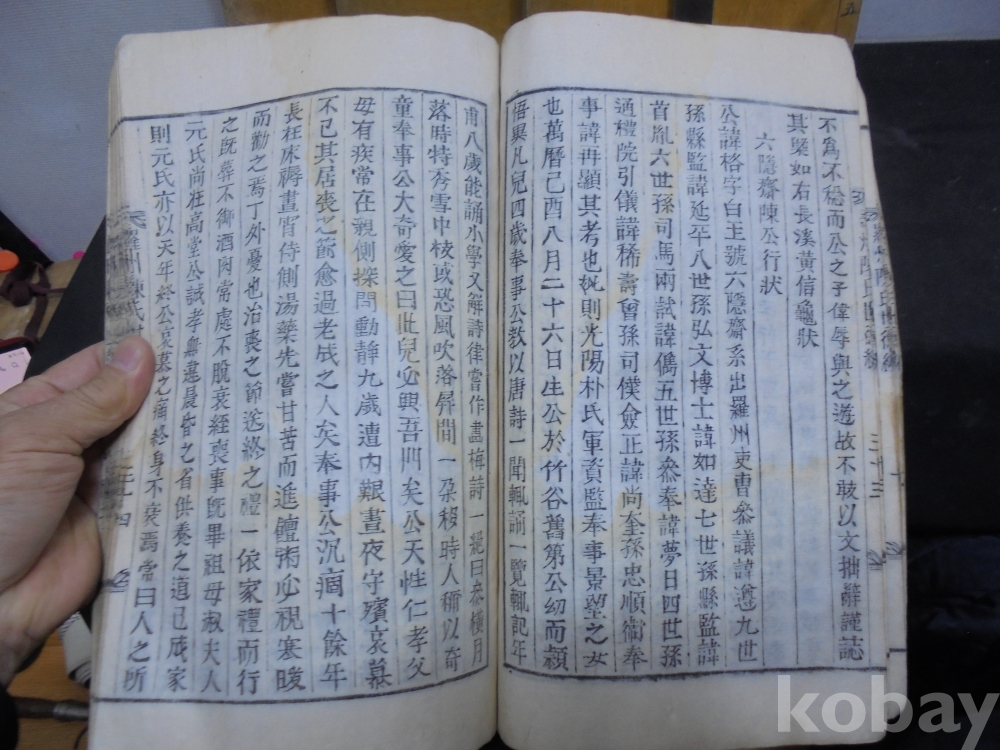 不爲不稔而公之子偉辱與之遊故不敢以文拙辭謹誌
其槩如右長溪黃信龜狀
六隱齋陳公行狀
公諱格字白主號六隱齋系出羅州吏曹參議諱遵九世
孫縣監諱延平八世孫弘文博士諱如達七世孫縣監諱
首胤六世孫司馬兩試諱儁五世孫叅奉諱夢日四世孫
通禮院引儀諱稀壽曾孫司僕僉正諱尚奎孫忠順衛奉
事諱再顯其考也妣則光陽朴氏軍資監奉事景望之女
也萬曆己酉八月二十六日生公於竹谷舊第公幼而穎
悟異凡兒四歲奉事公敎以唐詩一聞輒誦一覽輒記年
甫八歲能誦小學又解詩律嘗作畵梅詩一絕曰枩機月
落時特秀雪中枝或恐風吹落屛間一朶移時人稱以奇
童奉事公大奇愛之曰此兒必興吾門矣公天性仁孝父
母有疾常在親側探問動靜九歲遭內艱晝夜守殯哀慕
不已其居喪之節愈過老成之人矣奉事公沉痼十餘年
長在床褥晝宵侍側湯藥先嘗甘苦而進饘粥必視寒暖
而勸之焉丁外憂也治喪之節送終之禮一依家禮而行
之旣葬不御酒肉常處不脫衰絰喪事旣畢祖母淑夫人
元氏尚在高堂公誠孝無違晨昏之省供養之道已成家
則元氏亦以天年終公哀慕之痛終身不衰焉常曰人之所
羅州陳氏
三十三
kobay